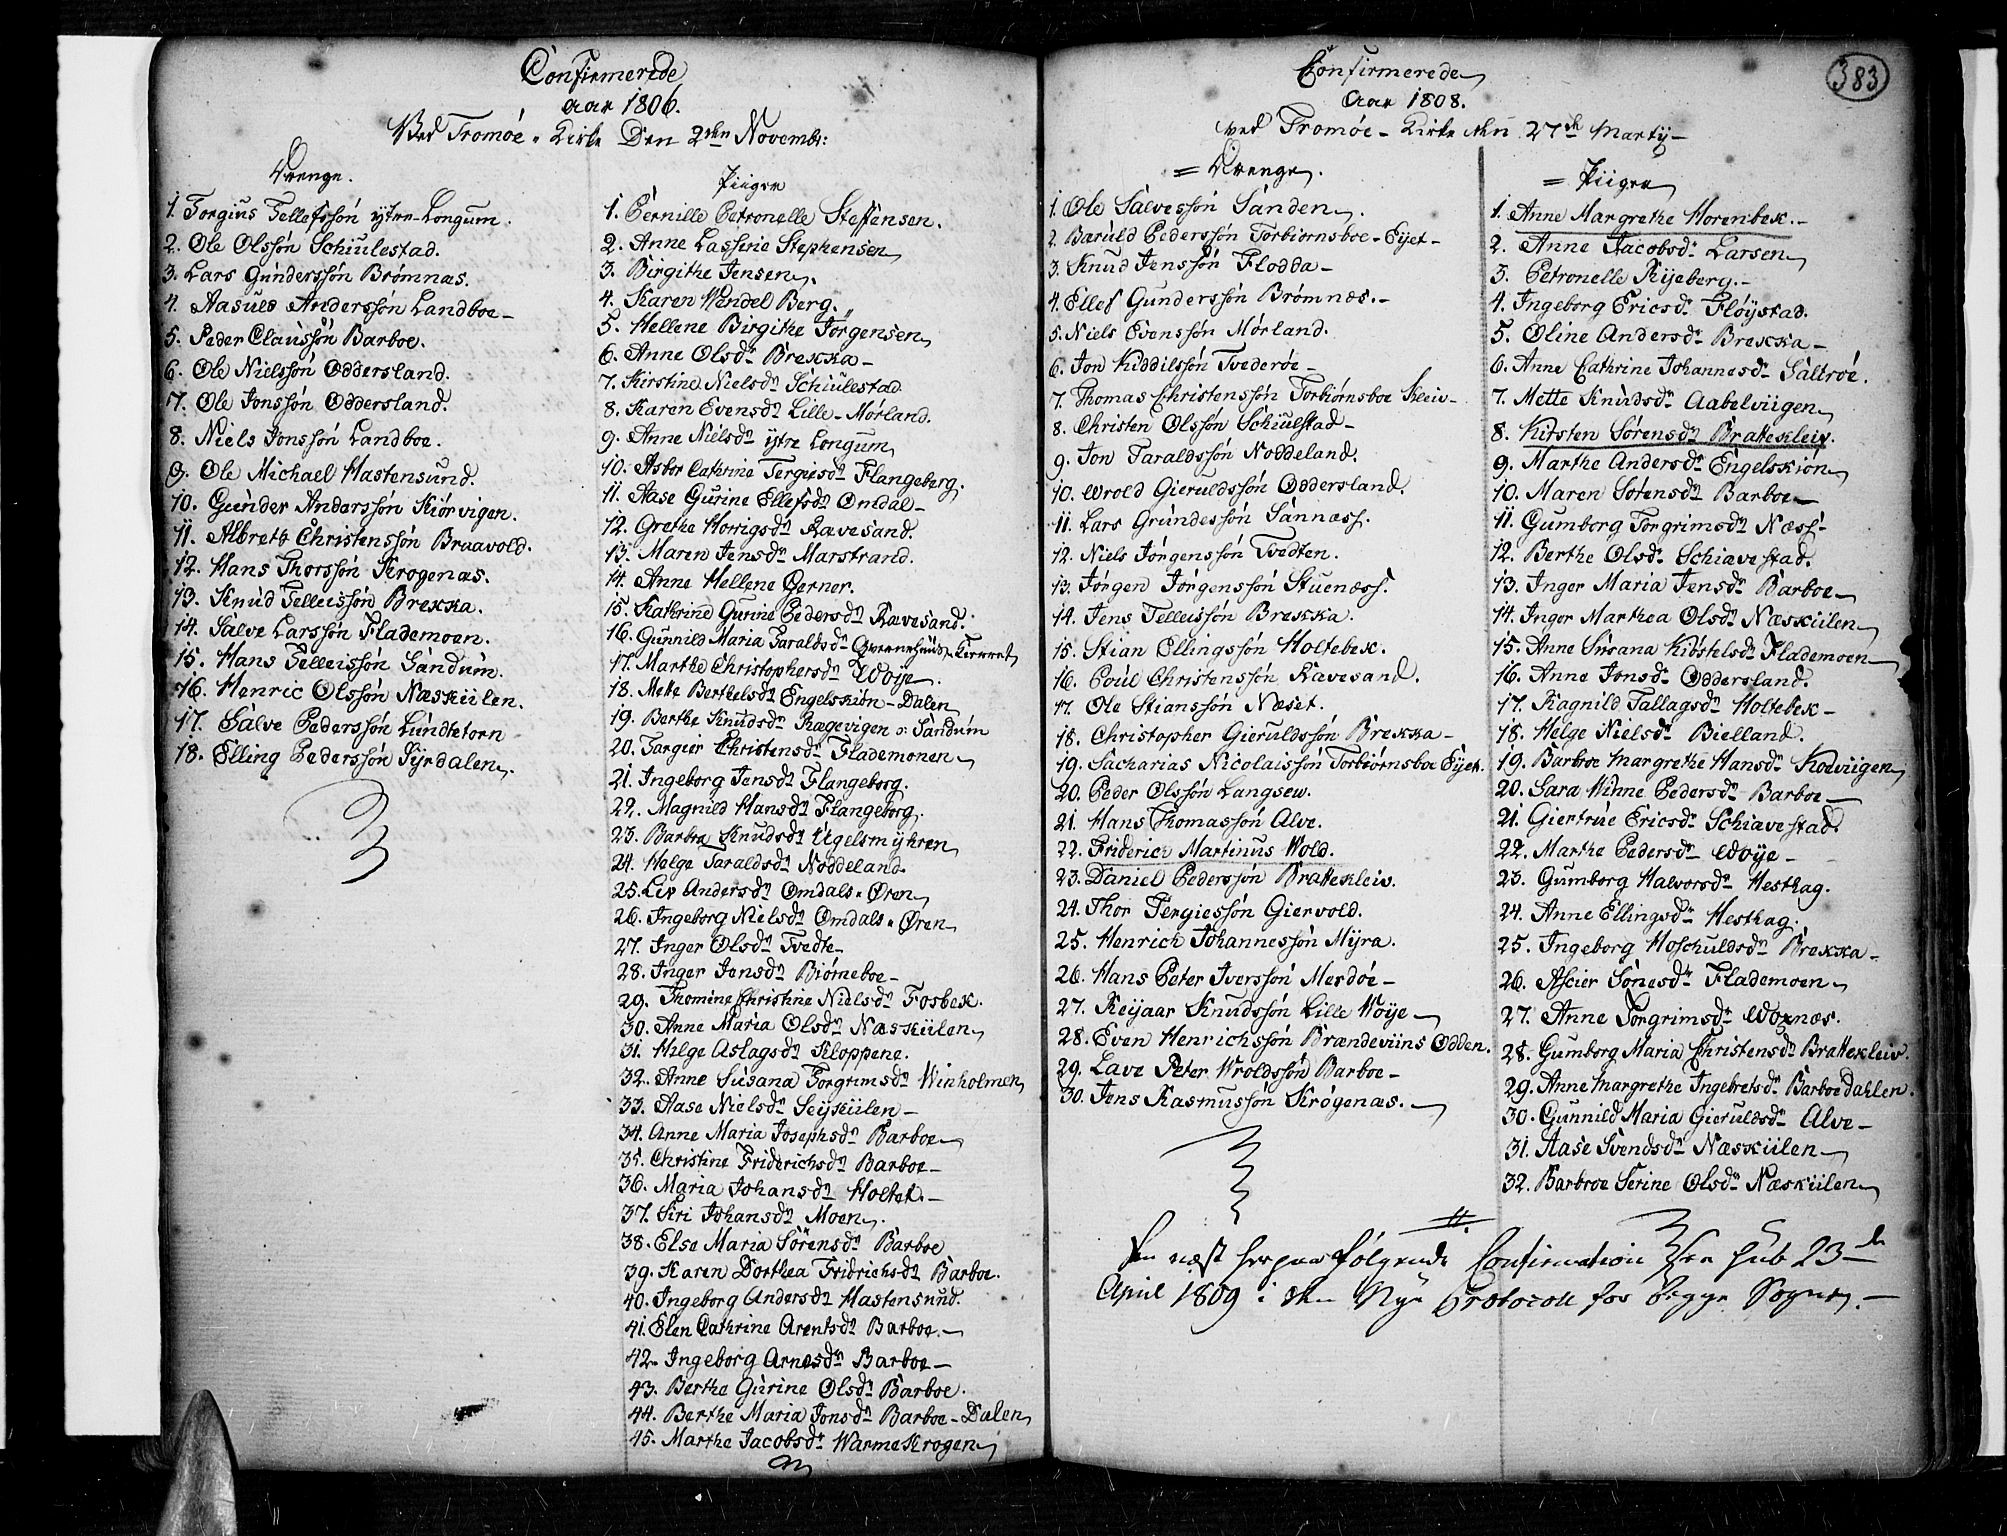 Confirmerede
aar 1806.
Ved Tromøe-Kirke Den 2den Novembr:
Drenge.
1. Torgius Tellefssøn ytre-Longum.
2. Ole Olssøn Schiulestad.
3. Lars Gunderssøn Brømnæs.
4. Aasuld Anderssøn Landboe-
5. Peder Claussøn Barboe.
6. Ole Nielssøn Oddersland.
7. Ole Jonssøn Oddersland.
8. Niels Jonssøn Landboe.
9. Ole Michael Hastensund.
10. Gunder Anderssøn Kiørvigen.
11. Albreth Christenssøn Braavold.
12. Hans Thorssøn Krogenæs.
13. Knud Telleissøn Brekka.
14. Salve Larssøn Flademoen.
15. Hans Telleissøn Sandum.
16. Henric Olssøn Næskiilen.
17. Salve Pederssøn Lundtetorn
18. Elling Pederssøn Fyrdalen.
Piiger
1. Pernille Petronelle Steffensen.
2. Anne Lasserie Stephensen
3. Birgithe Jensen.
4. Karen Wendel Berg.
5. Hellene Birgithe Jørgensen
6. Anne Olsdr Brekka-
7. Kirstine Nielsdr Schiulestad
8. Karen Evensdr Lille-Mørland.
9. Anne Nielsdr ytre Longum
10. Asbor Cathrine Tergiesdr Flangeborg.
11. Aase Gurine Ellefsdr Omdal-
12. Grethe Horrigsdr Ravesand.
13. Maren Jensdr Marstrand.
14. Anne Hellene Gerner.
15. Kathrine Gurine Pedersdr Ravesand.
16. Gunnild Maria Taraldsdr Qvernehuus-
17. Marthe Christophersdr Woye.
18. Mette Berthelsdr Engelskiøn-Dalen
19. Berthe Knudsdr Rægevigen o: Sandum
20. Targier Christensdr Flademonen
21. Ingeborg Jensdr Flangeborg.
22. Magnild Hansdr Flangeborg.
23. Barbra Knudsdr Ugelsmyhren
24. Helge Taraldsdr Noddeland.
25. Liv Andersdr Omdals-Øren
26. Ingeborg Nielsdr Omdals-Øren
27. Inger Olsdr Tvedte-
28. Inger Jensdr Biørneboe-
29. Thomine Christine Nielsdr Fosbek.
30. Anne Maria Olsdr Næskiilen
31. Helge Aslagsdr Kloppene.
32. Anne Susana Torgrimsdr Winholmen
33. Aase Nielsdr Seyskiilen-
34. Anne Maria Josephsdr Barboe
35. Christine Friderichsdr Barboe-
36. Maria Johansdr Holtet.-
37. Siri Johansdr Moen.
38. Else Maria Sørensdr Barboe
39. Karen Dorthea Fridrichsdr Barboe.
40. Ingeborg Andersdr Hastensund.
41. Elen Cathrine Arentsdr Barboe.-
42. Ingeborg Arnesdr Barboe-
43. Berthe Gurine Olsdr Barboe.
44. Berthe Maria Jonsdr Barboe-Dalen
45. Marthe Jacobsdr Warmekrogen
383
Confirmerede
Aar 1808.
ved Tromøe-Kirke den 27de Martij-
= Drenge.
1. Ole Salvessøn Sanden.
2. Baruld Pederssøn Torbiørnsboe-Eyet-
3. Knud Jenssøn Flodda-
4. Ellef Gunderssøn Brømnæs.-
5. Niels Evenssøn Mørland.
6. Jon Kiddilssøn Tvederøe-
7. Thomas Christenssøn Torbiørnsboe Kleiv-
8. Christen Olssøn Schiulstad-
9. Jon Taraldssøn Noddeland.
10. Wrold Gieruldssøn Oddersland.
11. Lars Grundessøn Sannæss.
12. Niels Jørgenssøn Tvedten.
13. Jørgen Jørgenssøn Stuenæss.
14. Jens Telleissøn Brekka.
15. Stian Ellingssøn Holtebek.
16. Poul Christenssøn Ravesand.
17. Ole Stianssøn Næset.
18. Christopher Gieruldssøn Brekka-
19. Sacharias Nicolaissøn Torbiørnsboe Eyet.
20. Peder Olssøn Langsew.
21. Hans Thomassøn Alve.
22. Friderich Martinus Wold.
23. Daniel Pederssøn Brattekleiv.
24. Thor Tergiessøn Giervold.
25. Henrich Johannessøn Myra.
26. Hans Peter Iverssøn Merdøe-
27. Reijaar Knudssøn Lille Woye
28. Even Henrichssøn Brændeviins Odden.
29. Lave Peter Wroldssøn Barboe-
30. Jens Rasmussøn Krøgenæs.
= Piiger
1. Anne Margrethe Morenbek.-
2. Anne Jacobsdr Larsen
3. Petronelle Kyeberg.-
4. Ingeborg Ericsdr Fløystad.
5. Oline Andersdr Brekka-
6. Anne Cathrine Johannesdr Saltrøe.
7. Mette Knudsdr Aabelviigen
8. Kirsten Sørensdr Brattekleiv.
9. Marthe Andersdr Engelskiøn
10. Maren Sørensdr Barboe
11. Gumborg Torgrimsdr Næss-
12. Berthe Olsdr Schiavestad.
13. Inger Maria Jensdr Barboe
14. Inger Marthea Olsdr Næskiilen
15. Anne Susana Kiøstelsdr Flademoen
16. Anne Jonsdr Oddersland.
17. Ragnild Tallagsdr Holtebek-
18. Helge Nielsdr Bielland.
19. Barbroe Margrethe Hansdr Kolviigen
20. Sara Winne Pedersdr Barboe-
21. Giertrue Ericsdr Schiavestad.
22. Marthe Pedersdr Woye-
23. Gumborg Halvorsdr Hesthag.
24. Anne Ellingsdr Hesthag.
25. Ingeborg Hoschuldsdr Brekka-
26. Ascier Sønesdr Flademoen
27. Anne Torgrimsdr Woxnæs.
28. Gumborg Maria Christensdr Brattekleiv.
29. Anne Margrethe Ingebretsdr Barboe Dahlen.
30. Gunnild Maria Gieruldsdr Alve-
31. Aase Svendsdr Næskiilen
32. Barbroe Serine Olsdr Næskiilen
Den næst herpaa følgende Confirmation 23de
April 1809 i den Nye Protocoll for begge Sogne.-